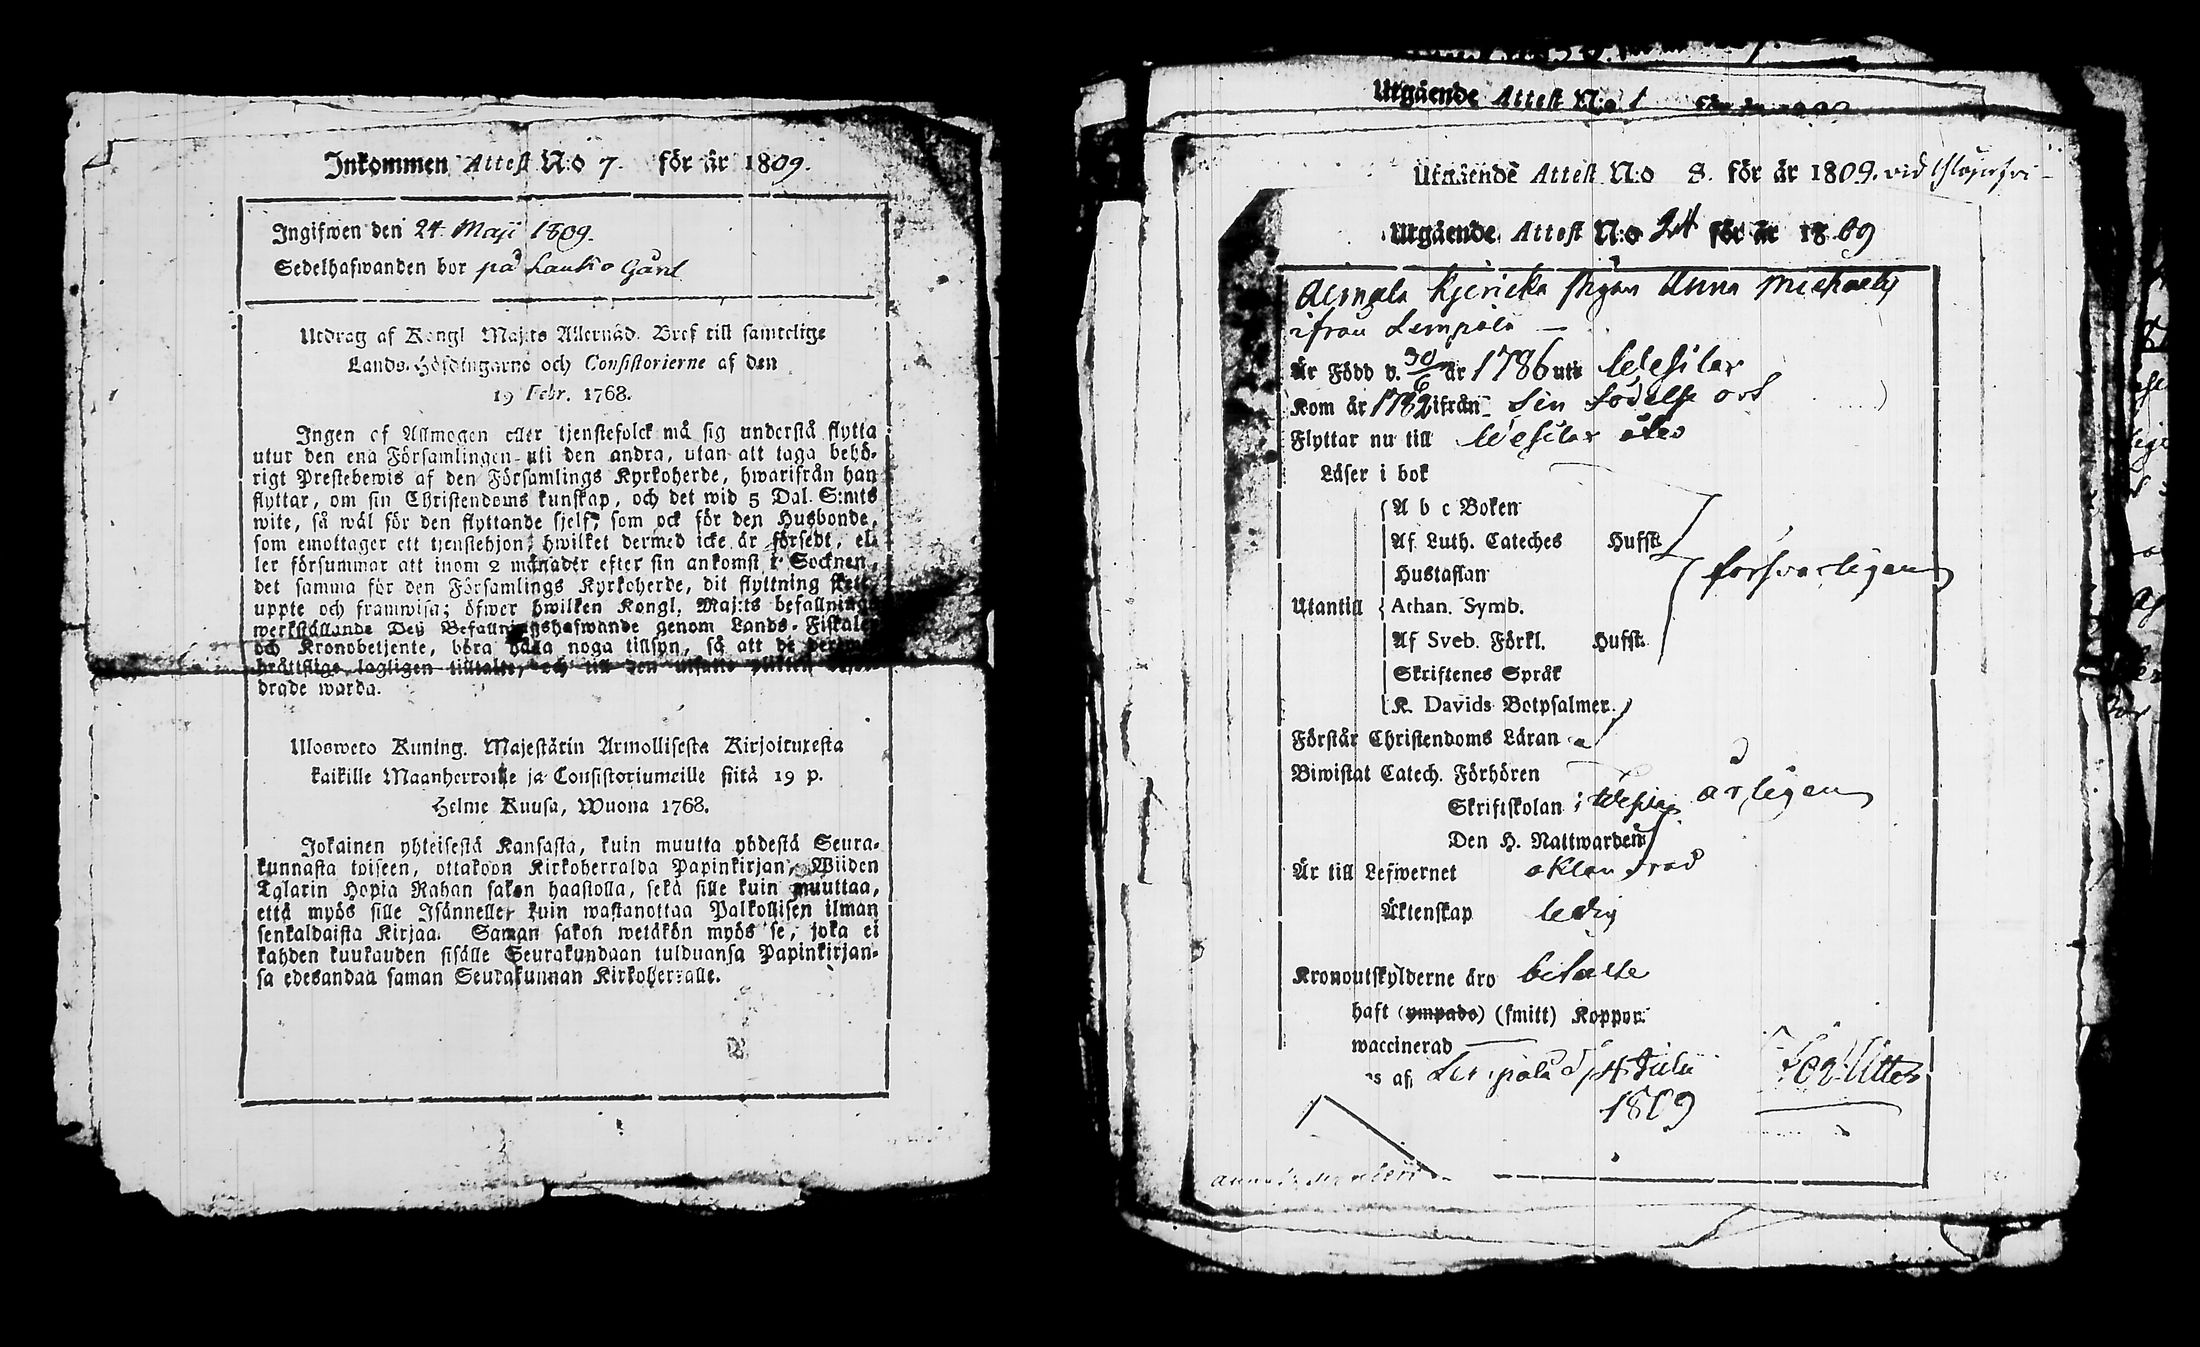 Inkommen Attest N:o 7. för år 1809.
Ingifwen den 24 Maji 1809.
Sedelhafwanden bor på Lauko Gård
Utdrag af Kongl Maj:ts Allernåd. Bref till samtelige
Lands-Höfdingarne och Consistorierne af den
19 Febr. 1768.
Ingen af Allmogen eller tjenstefolck må sig understå flytta
utur den ena Församlingen uti den andra, utan att taga behö-
rigt Prestebewis af den Församlings Kyrkoherde, hwarifrån han
flyttar, om sin Christendoms kunskap, och det wid 5 Dal. S:mts
wite, så wäl för den flyttande sjelf, som ock för den Husbonde,
som emottager ett tjenstehjon, hwilket dermed icke är försedt, el-
ler försummar att inom 2 månader efter sin ankomst i Socknen,
det samma för den Församlings Kyrkoherde, dit flyttning skett,
uppte och framwisa; öfwer hwilken Kongl. Maj:ts befallning
werkställande Deß Befallningshafwande genom Lands-Fiskaler
och Kronobetjente, böra hålla noga tillsyn, så att de
bråttslige lagligen tilltalte, och till den utsatte plikten
drade warda.
Ulosweto Kuning. Majestätin Armollisesta Kirjoituxesta
kaikille Maanherroille ja Consistoriumeille siitä 19 p.
Helme Kuusa, Wuona 1768.
Jokainen yhteisestä Kansasta, kuin muutta yhdestä Seura-
kunnasta toiseen, ottakoon Kirkoherralda Papinkirjan, Wiiden
Talarin Hopia Rahan sakon haastolla, sekä sille kuin muuttaa,
että myös sille Isännelle, kuin wastanottaa Palkollisen ilman
senkaldaista Kirjaa. Saman sakon wetäkön myös se, joka ei
kahden kuukauden sisälle Seurakundaan tulduansa Papinkirjan-
sa edesandaa saman Seurakunnan Kirkoherralle.
Utgående Attest N:o 1
Utgående Attest N:o 8. för år 1809. vid
Utgående Attest N:o 24 för år 1809
Anna Michaels
ifrån Lempälä
Är Född d. 30/6 år 1786 uti Wesilax
Kom år ifrån sin födelse ort
Flyttar nu till Wesilax åter
Läser i bok
A b c Boken
Af Luth. Cateches Husst.
Hustaflan
Utantill Athan. Symb.
försvarligen
Af Sveb. Förkl. Husst.
Skriftenes Språk
K. Davids Botpsalmer.
Förstår Christendoms Läran
Biwistat Catech. Förhören
Skriftskolan årligen
Den H. Nattwarden
Är till Lefwernet oklandrad
Äktenskap ledig
Kronoutskylderne äro betalte
haft (ympade) (smitt) Koppor.
waccinerad
af Lempälä d 4 Julii
1809